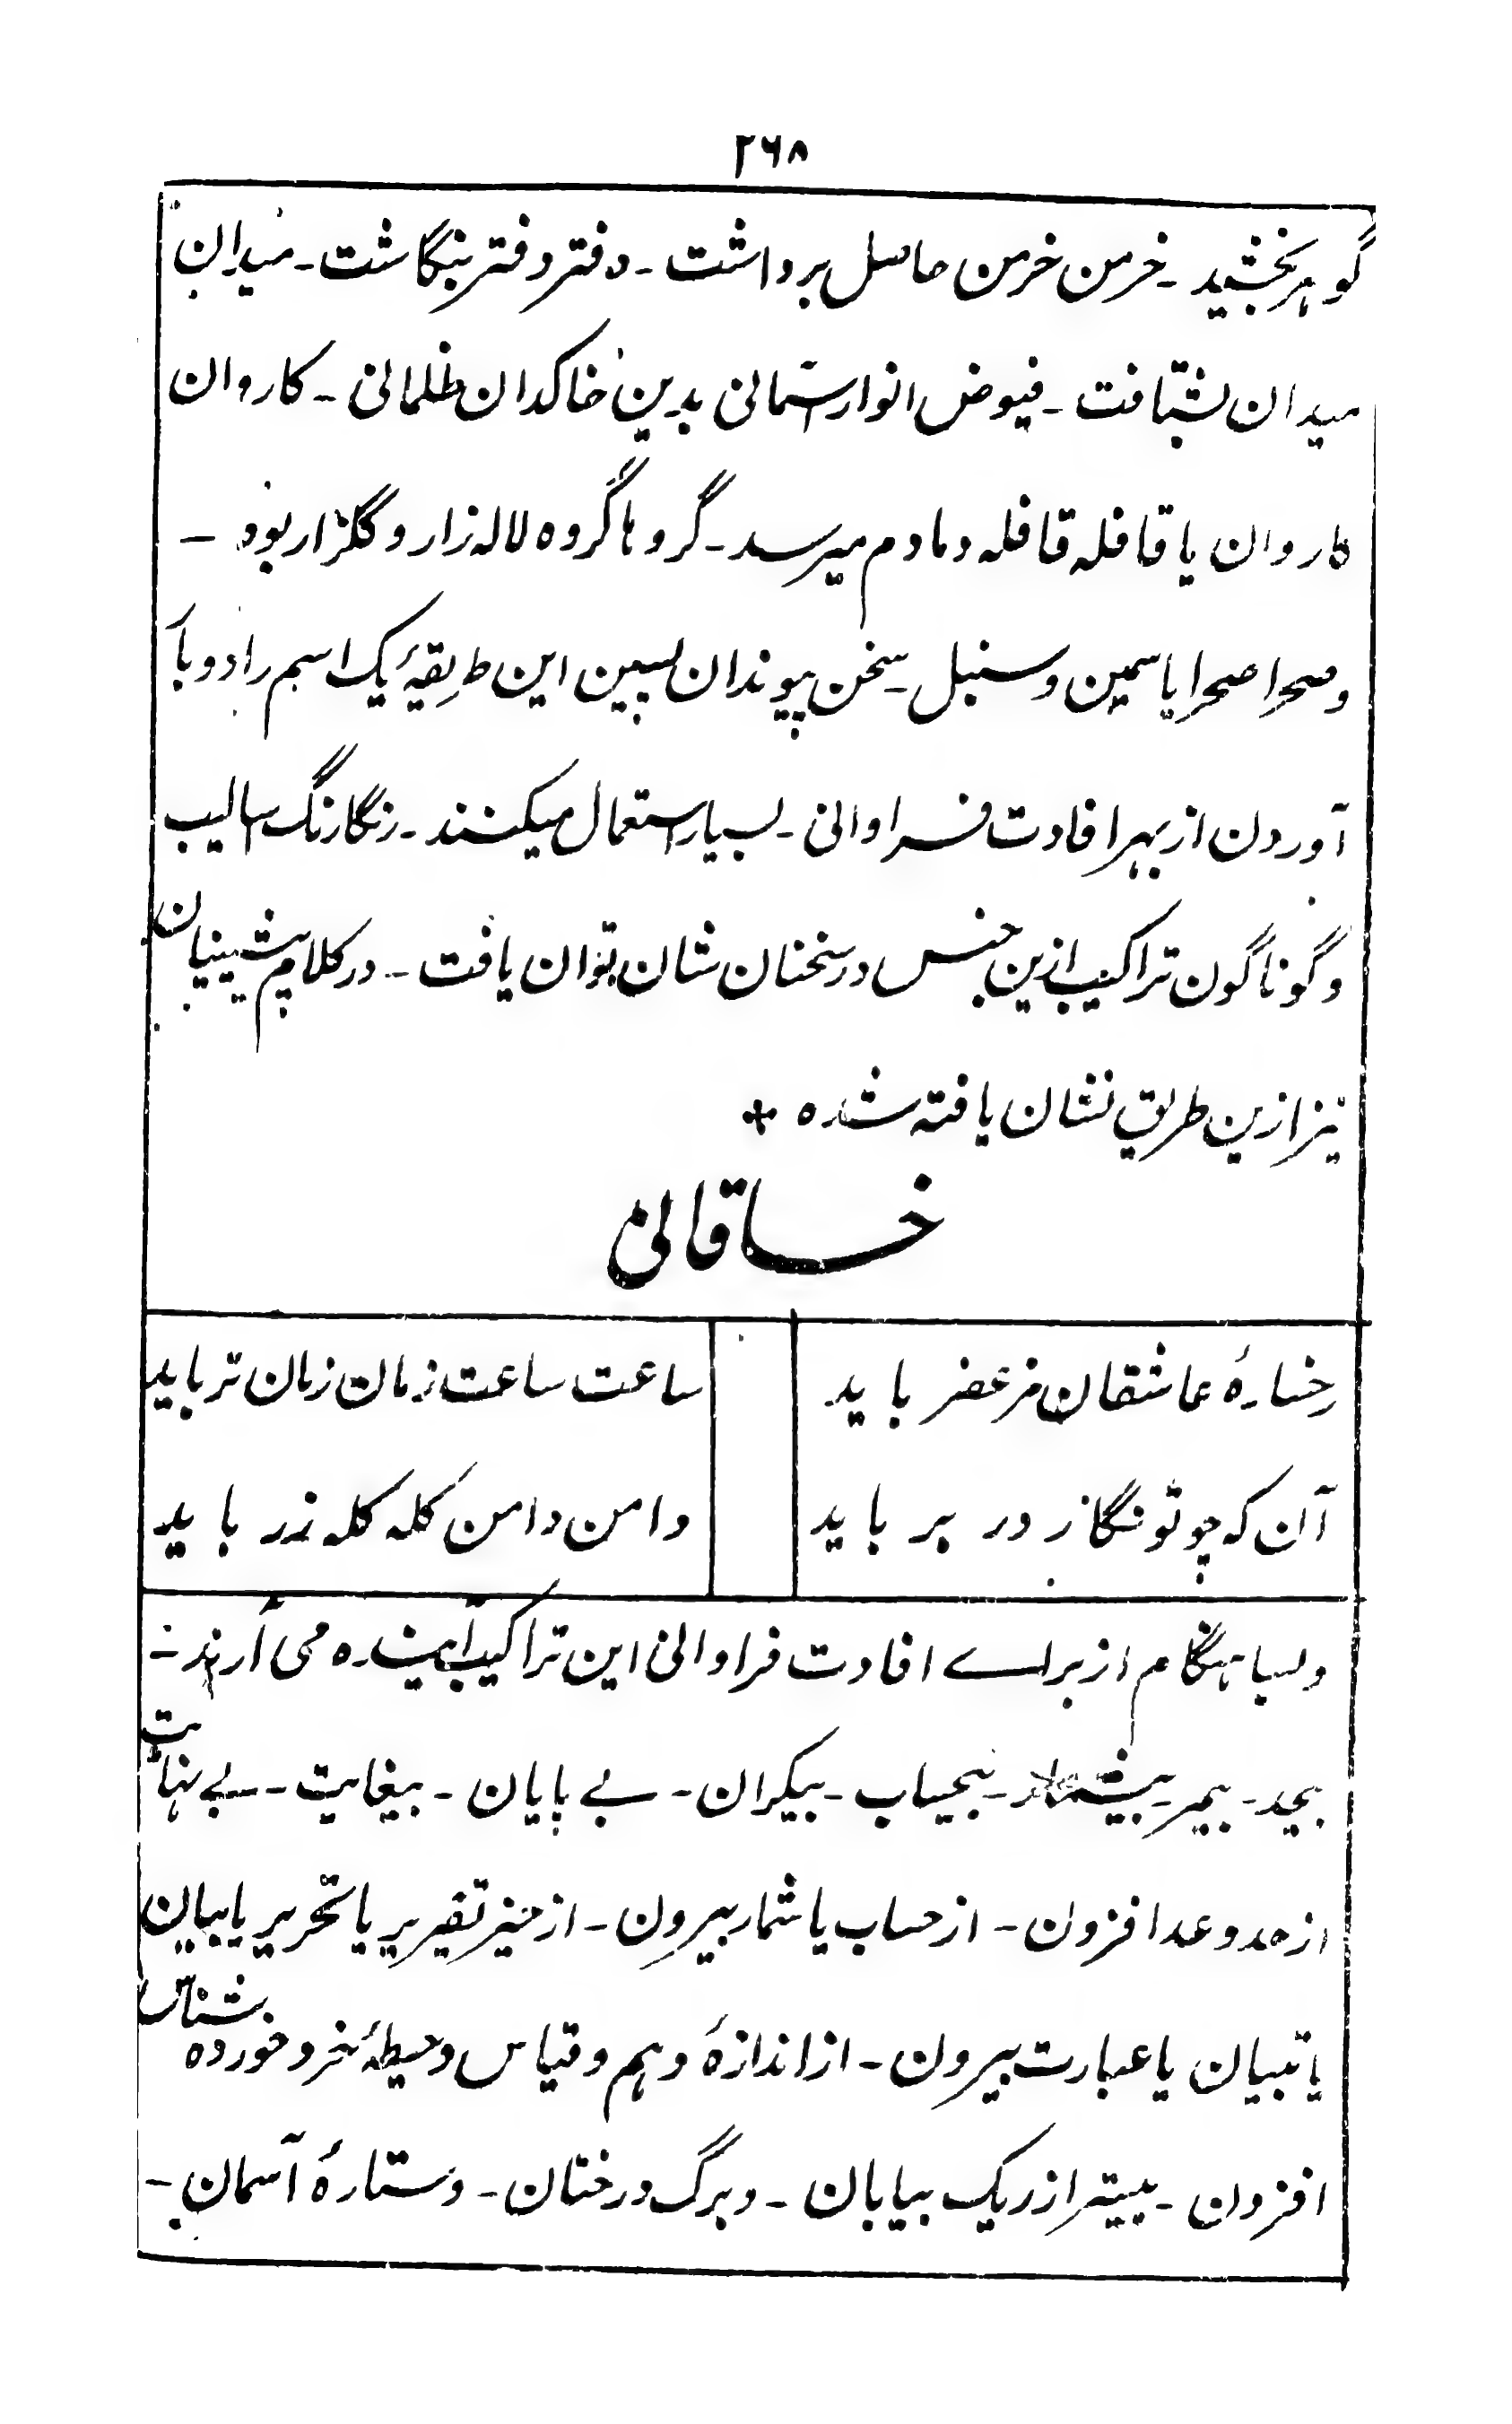 ۲۶۸
گوہر بخشید ۔ خرمن خرمن حاصل برداشت ۔ دفتر دفتر بنگاشت ۔ میدان
میدان بشتافت ۔ فیوض انوار آسمانی بدین خاکدان ظلمانی ۔ کاروان
کاروان یا قافلہ قافلہ دمادم میرسد ۔ گروہا گروہ لالہ زار و گلزار بود ۔
و صحرا صحرا یاسمین و سنبل ۔ سخن پیوندان پسین این طریقہٴ یک اسم را دوبار
آوردن از بہر افادت فراوانی ۔ بسیار استعمال میکنند ۔ رنگارنگ اسالیب
و گوناگون تراکیب ازین جنس در سخنان شان توان یافت ۔ در کلام پیشینیان
نیز ازین طریق نشان یافتہ شدہ +
خاقانی
رخسارہٴ عاشقان مزعفر باید ساعت ساعت زمان زمان تر باید
آن کہ چو تو نگار در بر باید دامن دامن کلہ کلہ زر باید
و بسا ہنگام از براے افادت فراوانی این تراکیب آیندہ می آرند :
بیحد ۔ بیمر ۔ بیشمار ۔ بیحساب ۔ بیکران ۔ بے پایان ۔ بیغایت ۔ بے نہایت
از حد و عد افزون ۔ از حساب یا شمار بیرون ۔ از حیز تقریر یا تحریر یا بیان
یا تبیان یا عبارت بیرون ۔ از اندازہٴ وہم و قیاس و حیطہٴ خرد خوردہ شناس
افزون ۔ بیشتر از ریگ بیابان ۔ و برگ درختان ۔ و ستارہٴ آسمان ۔